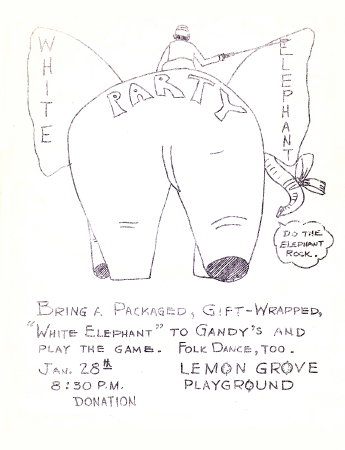 WHITE
ELEPHANT
PARTY
DO THE
ELEPHANT
ROCK.
BRING A PACKAGED, GIFT-WRAPPED,
"WHITE ELEPHANT" TO GANDY'S AND
PLAY THE GAME. FOLK DANCE, TOO.
JAN. 28th LEMON GROVE
8:30 P.M. PLAYGROUND
DONATION